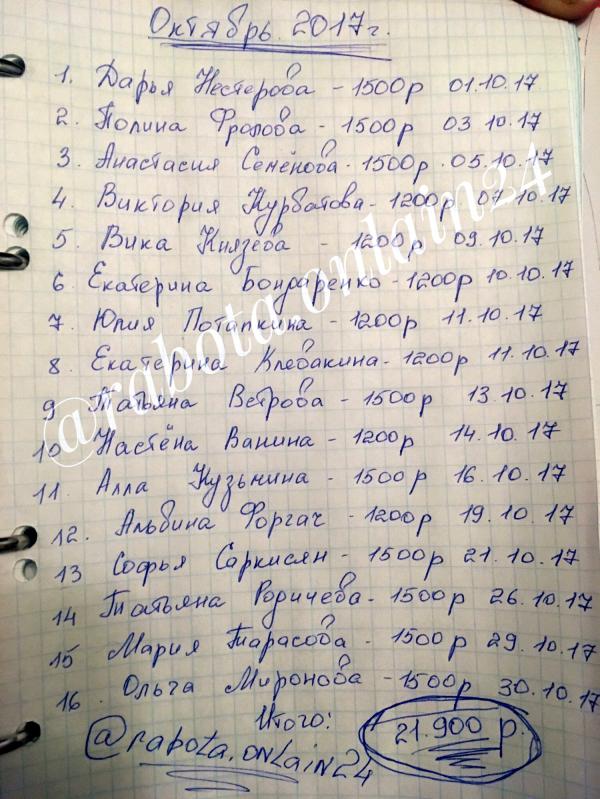 Октябрь 2017г.
1. Дарья Нестерова - 1500р 01.10.17
2. Полина Фролова - 1500р 03 10.17
3. Анастасия Семёнова - 1500р 05.10.17
4. Виктория Курбатова - 1200р 07.10.17
5. Вика Князева - 1200р 09.10.17
6 Екатерина Бондаренко - 1200р 10.10.17
7. Юлия Потапкина - 1200р 11.10.17
8. Екатерина Клебакина - 1200р 11.10.17
9 Татьяна Ветрова - 1500р 13.10.17
10 Настёна Ванина - 1200р 14.10.17
11. Алла Кузьнина - 1500р 16.10.17
12. Альбина Форгач - 1200р 19.10.17
13 Софья Саркисян - 1500р 21.10.17
14 Татьяна Родичева - 1500р 26.10.17
15 Мария Тарасова - 1500р 29.10.17
16. Ольга Миронова - 1500р 30.10.17
Итого: 21.900 р.
@rabota.onlain24
@rabota.omlain24